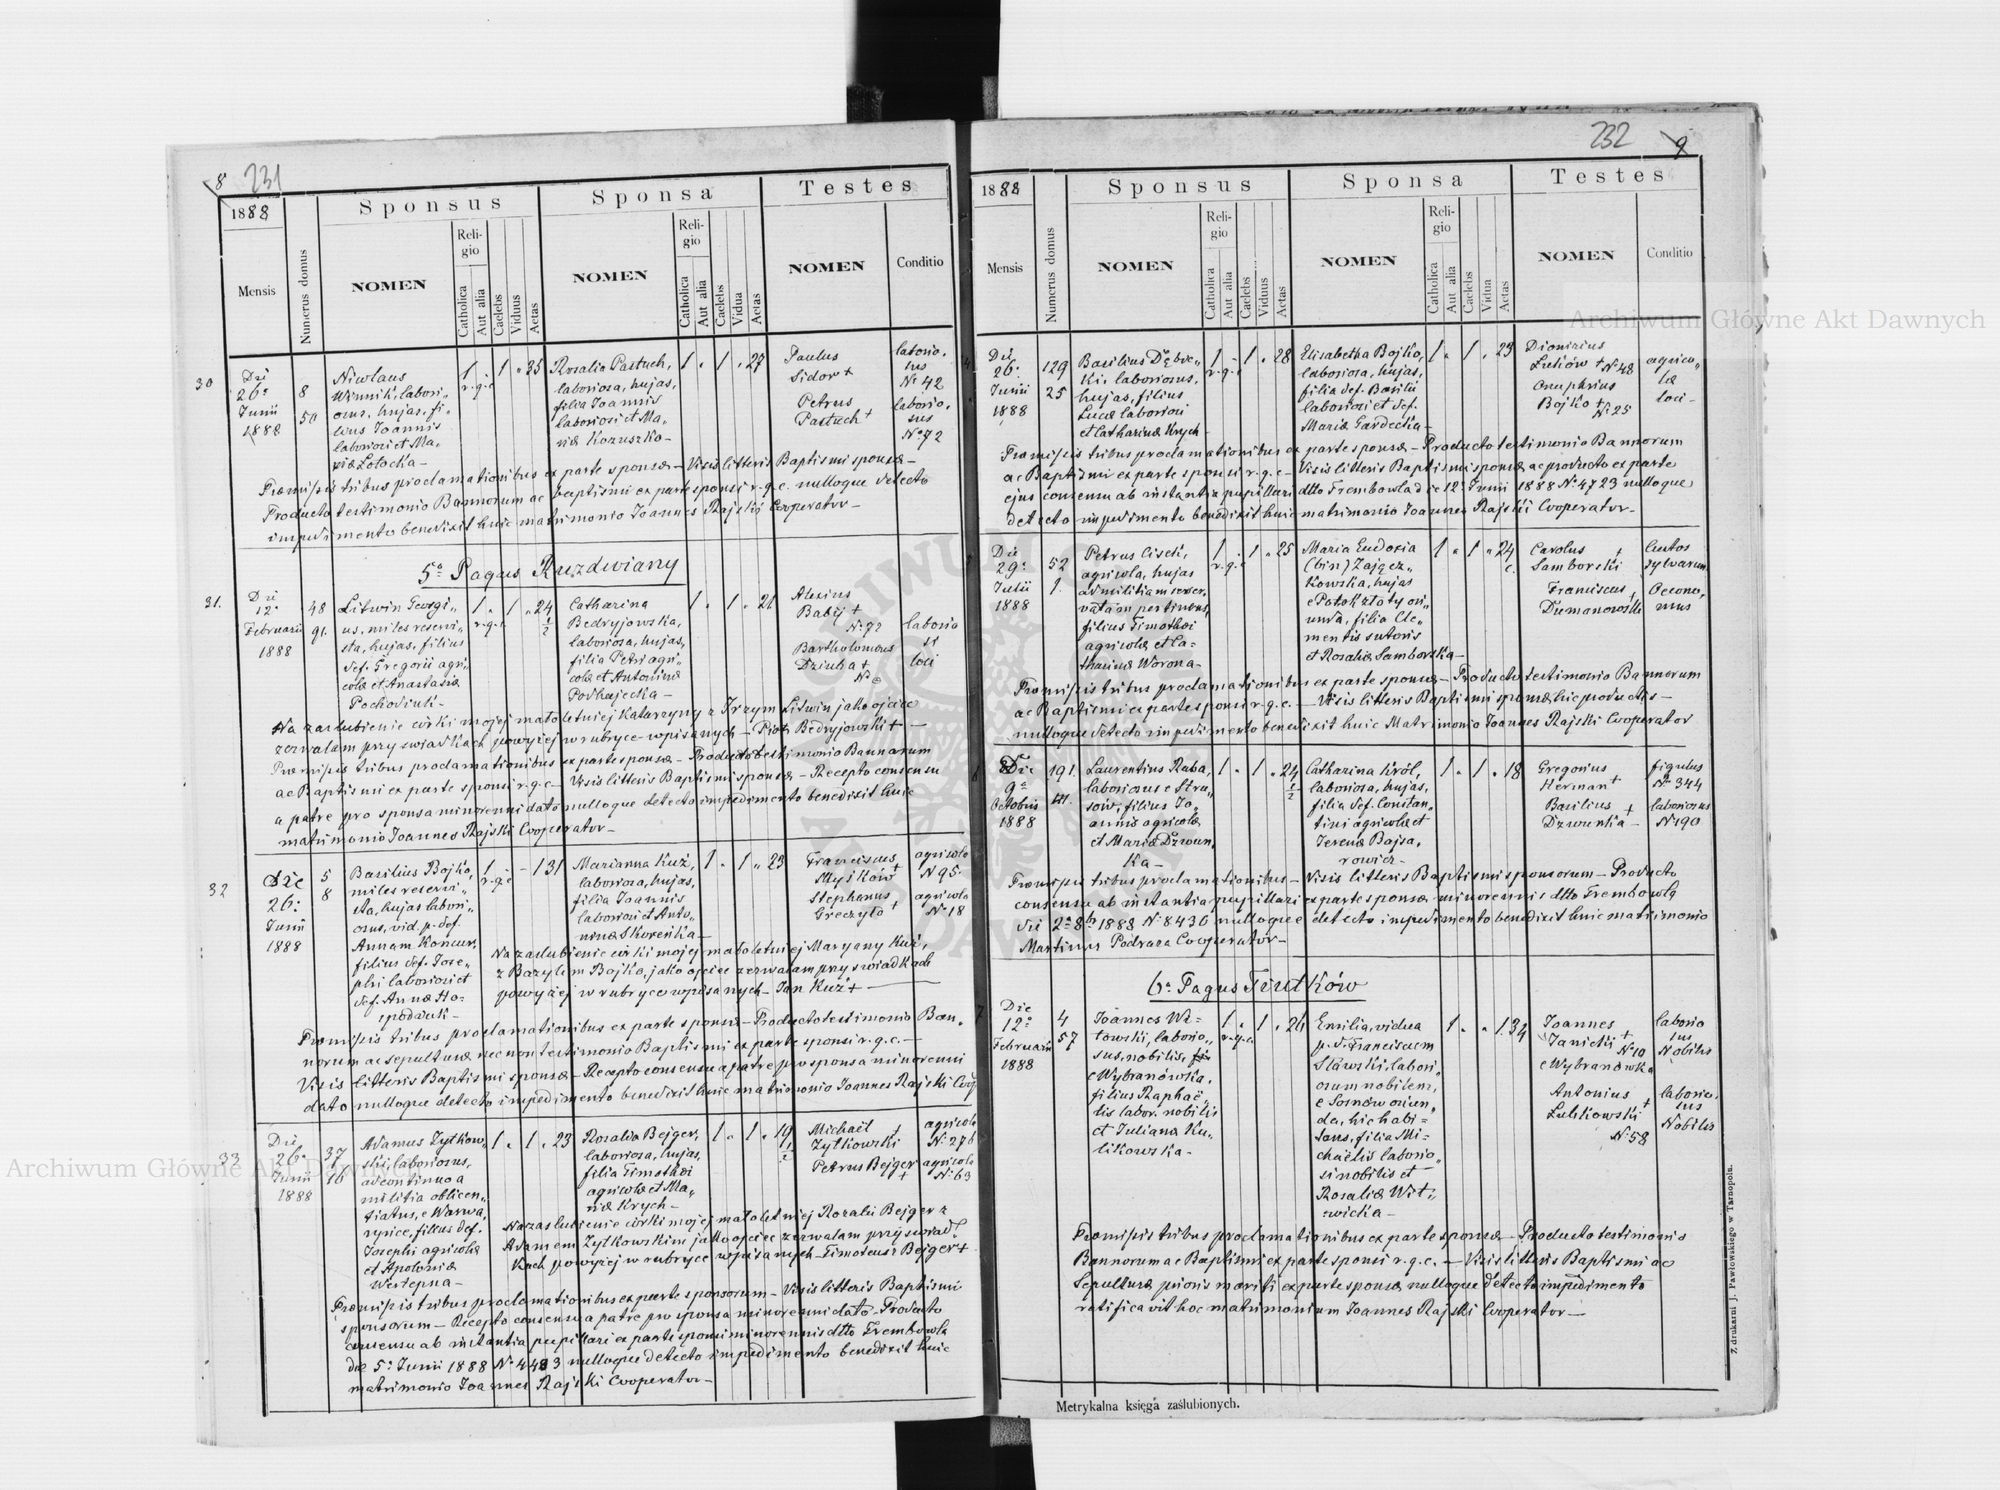 8 231
1888
Mensis
Numerus domus
Sponsus
NOMEN
Religio
Catholica
Aut alia
Caelebs
Viduus
Aetas
Sponsa
NOMEN
Religio
Catholica
Aut alia
Caelebs
Vidua
Aetas
Testes
NOMEN
Conditio
30
Die
26a
Junii
1888
8
50
Nicolaus
Winnik, labori„
osus, hujas, fi„
lius Joannis
laboriosi et Ma„
riæ Łotocka –
1 r.g.c. 1 35
Rosalia Pastuch,
laboriosa, hujas,
filia Joannis
laboriosi et Ma„
riæ Kozuszko –
1 „ 1 „ 27
Paulus
Sidor +
Petrus
Pastuch +
laborio„
sus
No 42
laborio„
sus
No 72
Præmissis tribus proclamationibus ex parte sponsæ – Visis litteris Baptismi sponsæ –
Producto testimonio Bannorum ac baptismi ex parte sponsi r.g.c. nulloque detecto
impedimento benedixit huic matrimonio Joannes Rajski Cooperator –
5o Pagus Ruzdwiany
31.
Die
12a
Februarii
1888
48
91.
Litwin Georgi„
us, miles reservi„
sta, hujas, filius
def. Gregorii agri„
colæ et Anastasiæ
Pochodiuk –
1 r.g.c. 1 24 1/2
Catharina
Bedryjowska,
laboriosa, hujas,
filia Petri agri„
colæ et Antoninæ
Podhajecka –
1 „ 1 „ 21
Alexius
Babij +
No 72
Bartholomeus
Dziuba +
No
laborio
si
loci
Na zaślubienie córki mojej małoletniej Katarzyny z Jrzym Litwin jako ojciec
zezwalam przy swiadkach powyżej w rubryce wpisanych – Piotr Bedryjowski + –
Præmissis tribus proclamationibus ex parte sponsæ – Producto testimonio Bannorum
ac Baptismi ex parte sponsi r.g.c. – Visis litteris Baptismi sponsæ – Recepto consensu
a patre pro sponsa minorenni dato nulloque detecto impedimento benedixit huic
matrimonio Joannes Rajski Cooperator –
32
Die
26a
Junii
1888
5
8
Basilius Bojko,
miles reservi„
sta, hujas labori„
osus, vid. p. def.
Annam Koncur,
filius def. Jose„
phi laboriosi et
def. Annæ Ho„
spodaruk –
1 r.g.c. – 1 31
Marianna Kuź,
laboriosa, hujas,
filia Joannis
laboriosi et Anto„
ninæ Skoreńka –
1 „ 1 „ 23
Franciscus
Myśków +
Stephanus
Greczyło +
agricola
No 95
agricola
No 18
Na zaslubienie córki mojej małoletniej Maryany Kuź,
z Bazylim Bojko, jako ojciec zezwalam przy swiadkach
powyżej w rubryce wpisanych – Jan Kuź +
Præmissis tribus proclamationibus ex parte sponsæ – Producto testimonio Ban„
norum ac sepulturæ nec non testimonio Baptismi ex parte sponsi r.g.c. –
Visis litteris Baptismi sponsæ – Recepto consensu a patre pro sponsa minorenni
dato nulloque detecto impedimento benedixit huic matrimonio Joannes Rajski Coop.
33
Die
26a
Junii
1888
37
16
Adamus Żytkow„
ski, laboriosus,
ad continuo a
militia oblicen„
tiatus, e Warwa„
ryńce, filius def.
Josephi agricolæ
et Apoloniæ
Westepna –
1 „ 1 „ 23
Rosalia Bejger,
laboriosa, hujas,
filia Timothei
agricolæ et Ma„
riæ Krych –
1 „ 1 „ 19 1/2
Michael +
Żytkowski
Petrus Bejger
+
agricola
No 276
agricola
No 63
Na zaslubienie córki mojej małoletniej Rozalii Bejger z
Adamem Żytkowskim jako ojciec zezwalam przy swiad„
kach powyżej w rubryce wpisanych – Timoteusz Bejger +
Præmissis tribus proclamationibus ex parte sponsorum – Visis litteris Baptismi
sponsorum – Recepto consensu a patre pro sponsa minorenni dato – Producto
consensu ab instantia pupillari ex parte sponsi minorennis dtto Trembowla
die 5a Junii 1888 No 4483 nulloque detecto impedimento benedixit huic
matrimonio Joannes Rajski Cooperator –
232 9
1888
Mensis
Numerus domus
Sponsus
NOMEN
Religio
Catholica
Aut alia
Caelebs
Viduus
Aetas
Sponsa
NOMEN
Religio
Catholica
Aut alia
Caelebs
Vidua
Aetas
Testes
NOMEN
Conditio
Die
26a
Junii
1888
129
25
Basilius Dębic„
ki, laboriosus,
hujas, filius
Lucæ laboriosi
et Catharinæ Krych –
1 r.g.c. – 1 „ 28
Elisabetha Bojko,
laboriosa, hujas,
filia def. Basilii
laboriosi et def.
Mariæ Gardecka –
1 „ 1 „ 23
Dionisius
Łuków + No 48
Onuphrius
Bojko +
No 25
agrico„
læ
loci –
Præmissis tribus proclamationibus ex parte sponsæ – Producto testimonio Bannorum
ac Baptismi ex parte sponsi r.g.c. – Visis litteris Baptismi sponsæ ac producto ex parte
ejus consensu ab instantia pupillari dtto Trembowla die 12a Junii 1888 No 4723 nulloque
detecto impedimento benedixit huic matrimonio Joannes Rajski Cooperator –
Die
29a
Julii
1888
52
1.
Petrus Cisek,
agricola, hujas
ad militiam reser„
vatam pertinens,
filius Timothei
agricolæ et Ca=
tharinæ Worona –
1 r.g.c. 1 „ 25
Maria Eudoxia
(bin) Zającz„
kowska, hujas
e Potok złoty ori„
unda, filia Cle„
mentis sutoris
et Rosaliæ Samborska –
1 „ 1 „ 24
Carolus +
Samborski
Franciscus +
Dumanowski
custos
sylvarum
Oecono„
mus
Præmissis tribus proclamationibus ex parte sponsæ – Producto testimonio Bannorum
ac Baptismi ex parte sponsi r.g.c. – Visis litteris Baptismi sponsæ hic productis –
nulloque detecto impedimento benedixit huic Matrimonio Joannes Rajski Cooperator
Die
9a
Octobris
1888
191.
Laurentius Ruba,
laboriosus e Stru„
sow, filius Jo„
annis agricolæ
et Mariæ Dzwon„
ka –
1 „ 1 „ 24 1/2
Catharina Król,
laboriosa, hujas,
filia def. Constan„
tini agricolæ et
Irenæ Bajsa„
rowicz –
1 „ 1 „ 18
Gregorius
Herman +
Basilius +
Dzwonka –
figulus
No 344
laboriosus
No 190
Præmissis tribus proclamationibus – Visis litteris Baptismi sponsorum – Producto
consensu ab instantia pupillari ex parte sponsæ minorennis dtto Trembowla
die 2a 8b 1888 No 8436 nulloque detecto impedimento benedixit huic matrimonio
Martinus Podraza Cooperator –
6o Pagus Tiutków
Die
12a
Februarii
1888
4
57
Joannes Wi–
towski, laborio„
sus, nobilis,
e Wybranówka,
filius Raphaë„
lis labor. nobilis
et Juliana Ku„
likowska –
1 „ r.g.c. 1 „ 26
Emilia, vidua
p. d. Franciscum
Sławski, labori„
osum nobilem,
e Sosnów oriun„
da, hic habi=
tans, filia Mi–
chaëlis laborio„
si nobilis et
Rosaliæ Wit„
wicka –
1 „ „ 1 34
Joannes
Janicki +
No 10
e Wybranówka
Antonius +
Lubkowski
No 58
laborio
sus
Nobilis
laborio„
sus
Nobilis
Præmissis tribus proclamationibus ex parte sponsæ – Producto testimonio
Bannorum ac Baptismi ex parte sponsi r.g.c. – Visis litteris Baptismi ac
Sepulturæ prioris mariti ex parte sponsæ nulloque detecto impedimento
ratificavit hoc matrimonium Joannes Rajski Cooperator –
Metrykalna księga zaślubionych.
Z drukarni J. Pawłowskiego w Tarnopolu.
Archiwum Główne Akt Dawnych
Archiwum Główne Akt Dawnych